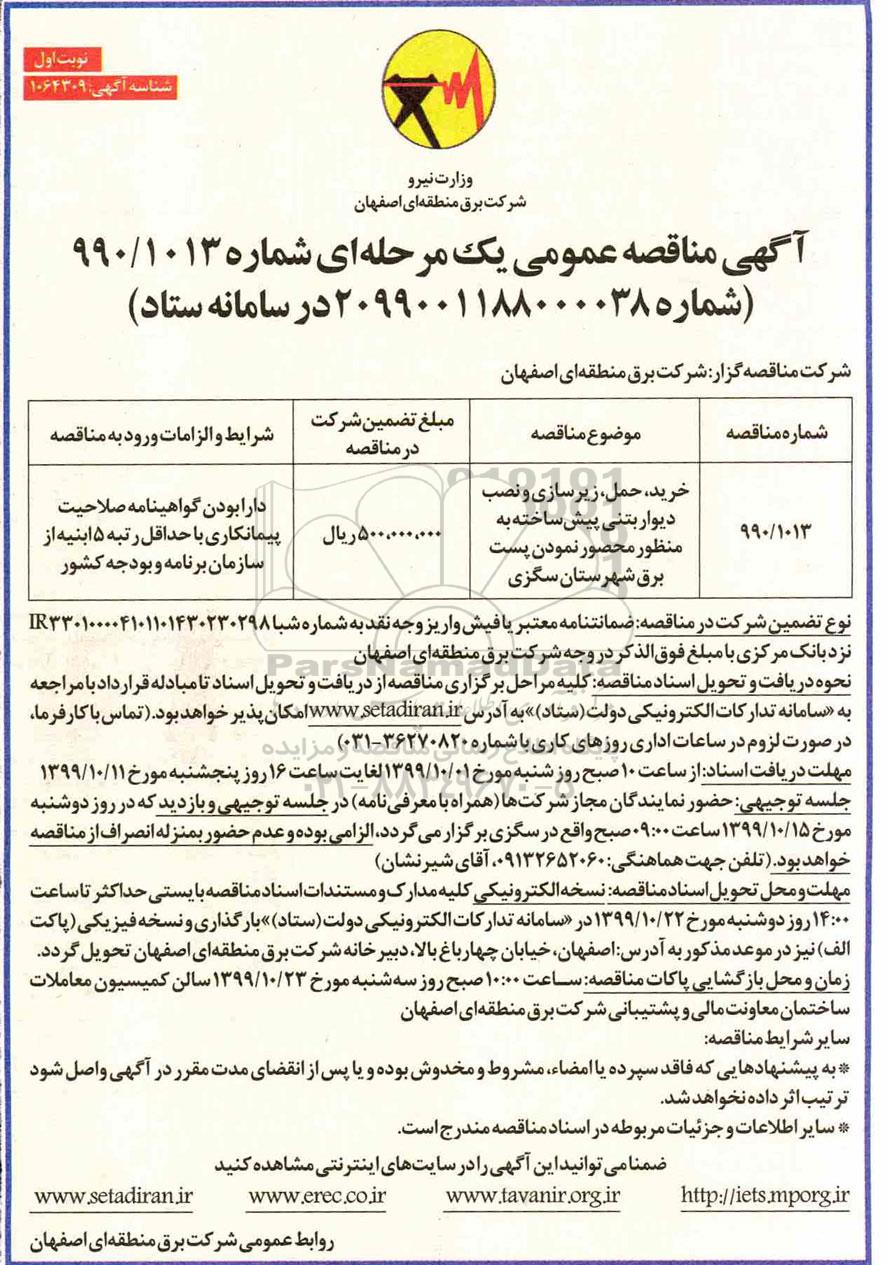 نوبت اول
شناسه آگهی: ۱۰۶۴۳۰۹
وزارت نیرو
شرکت برق منطقه‌ای اصفهان
آگهی مناقصه عمومی یک مرحله‌ای شماره ۹۹۰/۱۰۱۳
(شماره ۲۰۹۹۰۰۱۱۸۸۰۰۰۰۳۸ در سامانه ستاد)
شرکت مناقصه گزار: شرکت برق منطقه‌ای اصفهان
شماره مناقصه
موضوع مناقصه
مبلغ تضمین شرکت
در مناقصه
شرایط و الزامات ورود به مناقصه
۹۹۰/۱۰۱۳
خرید، حمل، زیرسازی و نصب
دیوار بتنی پیش ساخته به
منظور محصور نمودن پست
برق شهرستان سگزی
۵۰۰,۰۰۰,۰۰۰ ریال
دارا بودن گواهینامه صلاحیت
پیمانکاری با حداقل رتبه ۵ ابنیه از
سازمان برنامه و بودجه کشور
نوع تضمین شرکت در مناقصه: ضمانتنامه معتبر یا فیش واریز وجه نقد به شماره شبا IR۳۳۰۱۰۰۰۰۴۱۰۱۱۰۱۴۳۰۲۳۰۲۹۸
نزد بانک مرکزی با مبلغ فوق الذکر در وجه شرکت برق منطقه‌ای اصفهان
نحوه دریافت و تحویل اسناد مناقصه: کلیه مراحل برگزاری مناقصه از دریافت و تحویل اسناد تا مبادله قرارداد با مراجعه
به «سامانه تدارکات الکترونیکی دولت (ستاد)» به آدرس www.setadiran.ir امکان پذیر خواهد بود. (تماس با کارفرما،
در صورت لزوم در ساعات اداری روزهای کاری با شماره ۳۶۲۷۰۸۲۰-۰۳۱)
مهلت دریافت اسناد: از ساعت ۱۰ صبح روز شنبه مورخ ۱۳۹۹/۱۰/۰۱ لغایت ساعت ۱۶ روز پنجشنبه مورخ ۱۳۹۹/۱۰/۱۱
جلسه توجیهی: حضور نمایندگان مجاز شرکت‌ها (همراه با معرفی نامه) در جلسه توجیهی و بازدید که در روز دوشنبه
مورخ ۱۳۹۹/۱۰/۱۵ ساعت ۰۹:۰۰ صبح واقع در سگزی برگزار می گردد، الزامی بوده و عدم حضور بمنزله انصراف از مناقصه
خواهد بود. (تلفن جهت هماهنگی: ۰۹۱۳۲۶۵۲۰۶۰، آقای شیرنشان)
مهلت و محل تحویل اسناد مناقصه: نسخه الکترونیکی کلیه مدارک و مستندات اسناد مناقصه بایستی حداکثر تا ساعت
۱۴:۰۰ روز دوشنبه مورخ ۱۳۹۹/۱۰/۲۲ در «سامانه تدارکات الکترونیکی دولت (ستاد)» بارگذاری و نسخه فیزیکی (پاکت
الف) نیز در موعد مذکور به آدرس: اصفهان، خیابان چهارباغ بالا، دبیرخانه شرکت برق منطقه‌ای اصفهان تحویل گردد.
زمان و محل بازگشایی پاکات مناقصه: ساعت ۱۰:۰۰ صبح روز سه شنبه مورخ ۱۳۹۹/۱۰/۲۳ سالن کمیسیون معاملات
ساختمان معاونت مالی و پشتیبانی شرکت برق منطقه‌ای اصفهان
سایر شرایط مناقصه:
* به پیشنهادهایی که فاقد سپرده یا امضاء، مشروط و مخدوش بوده و یا پس از انقضای مدت مقرر در آگهی واصل شود
ترتیب اثر داده نخواهد شد.
* سایر اطلاعات و جزئیات مربوطه در اسناد مناقصه مندرج است.
ضمنا می توانید این آگهی را در سایت‌های اینترنتی مشاهده کنید
http://iets.mporg.ir www.tavanir.org.ir www.erec.co.ir www.setadiran.ir
روابط عمومی شرکت برق منطقه‌ای اصفهان
ParsNamadData